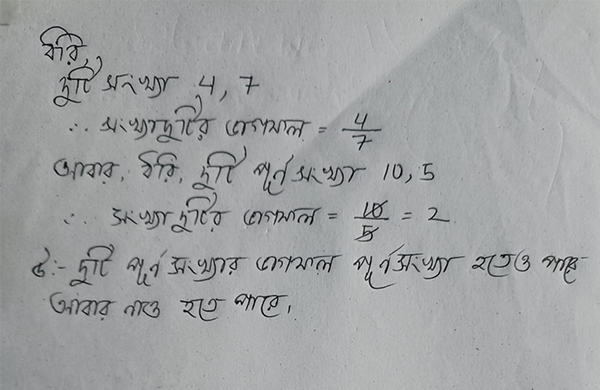 ধরি,
দুটি সংখ্যা 4, 7
∴ সংখ্যাদুটির ভাগফল = 4/7
আবার, ধরি, দুটি পূর্ন সংখ্যা 10, 5
∴ সংখ্যা দুটির ভাগফল = 10/5 = 2
উঃ- দুটি পূর্ন সংখ্যার ভাগফল পূর্নসংখ্যা হতেও পারে
আবার নাও হতে পারে।